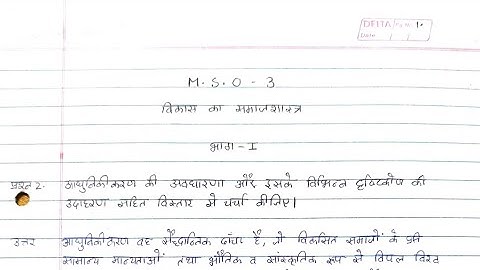 DELTA Pg No. 1
Date / /
M. S. O - 3
विकास का समाजशास्त्र
भाग - I
प्रश्न 2. आधुनिकीकरण की अवधारणा और इसके विभिन्न दृष्टिकोण की
उदाहरण सहित विस्तार में चर्चा कीजिए।
उत्तर आधुनिकीकरण वह सैद्धान्तिक ढांचा है, जो विकसित समाजों के प्रति
सामान्य मान्यताओं तथा भौतिक व सांस्कृतिक रूप से विपल विश्व